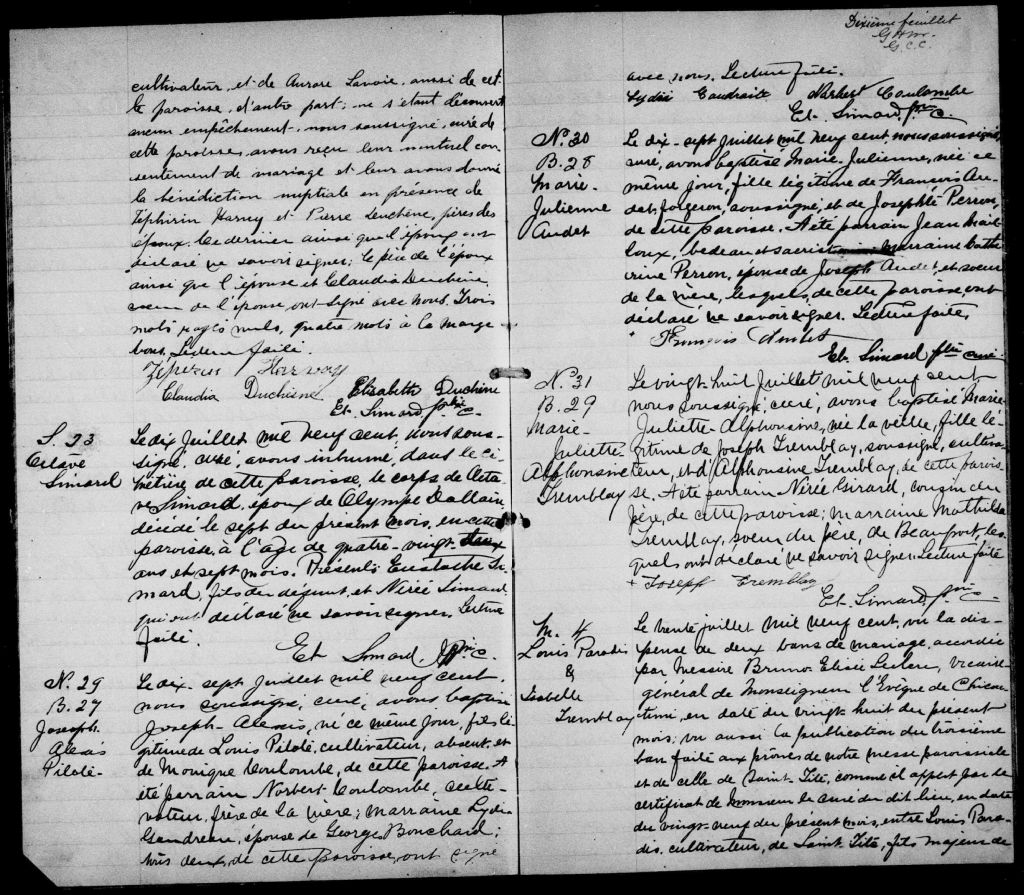 cultivateur, et de Aurore Savoie, aussi de cet-
te paroisse, d'autre part; ne s'étant découvert
aucun empêchement, nous soussigné, curé de
cette paroisse, avons reçu leur mutuel con-
sentement de mariage et leur avons donné
la bénédiction nuptiale en présence de
Zéphirin Harvey et Pierre Duchêne, pères des
époux. Ce dernier ainsi que l'époux ont
déclaré ne savoir signer. Le père de l'époux
ainsi que l'épouse et Claudia Duchêne,
soeur de l'épouse, ont signé avec nous. Trois
mots rayés nuls, quatre mots à la marge
bons. Lecture faite.
Harvay
Claudia Duchesne Elisabeth Duchene
Et. Simard ptre c.
S. 23
Octave
Simard
Le dix juillet mil neuf cent, nous sous-
signé, curé, avons inhumé, dans le ci-
metière de cette paroisse, le corps de Octa-
ve Simard, époux de Olympe Dallaire,
décédé le sept du présent mois, en cette
paroisse, à l'âge de quatre-vingt-deux
ans et sept mois. Présents Eustache Si-
mard, fils du défunt, et Nérée Simard
qui ont déclaré ne savoir signer. Lecture
faite.
Et Simard ptre c.
N. 29
B. 27
Joseph-
Alexis
Pilote-
Le dix-sept juillet mil neuf cent
nous soussigné, curé, avons baptisé
Joseph-Alexis, né ce même jour, fils lé-
gitime de Louis Pilote, cultivateur, absent, et
de Monique Coulombe, de cette paroisse. A
été parrain Norbert Coulombe, culti-
vateur, frère de la mère; marraine Lydie
Gaudreau, épouse de George Bouchard;
tous deux, de cette paroisse, ont signé
Dixième feuillet
G.C.C.
avec nous. Lecture faite.
Lydie Gaudrault Norbert Coulombe
Et. Simard ptre c.
N. 30
B. 28
Marie-
Julienne
Audet
Le dix-sept juillet mil neuf cent, nous soussigné,
curé, avons baptisé Marie-Julienne, née ce
même jour, fille légitime de François Au-
det, forgeron, soussigné, et de Josephte Perron,
de cette paroisse. A été parrain Jean Mail-
loux, bedeau et sacristain marraine Cathe-
rine Perron, épouse de Joseph Audet, et soeur
de la mère, lesquels, de cette paroisse, ont
déclaré ne savoir signer. Lecture faite,
François Audet
Et. Simard ptre curé
N. 31
B. 29
Marie-
Juliette-
Alphonsine
Tremblay
Le vingt-huit juillet mil neuf cent
nous soussigné, curé, avons baptisé Marie-
Juliette-Alphonsine, née la veille, fille lé-
gitime de Joseph Tremblay, soussigné, cultiva-
teur, et d'Alphonsine Tremblay, de cette parois-
se. A été parrain Nérée Girard, cousin du
père, de cette paroisse; marraine Mathilde
Tremblay, soeur du père, de Beauport, les-
quels ont déclaré ne savoir signer. Lecture faite
+ Joseph Tremblay
Et. Simard ptre
M. 4
Louis Paradis
&
Isabelle
Tremblay
Le trente juillet mil neuf cent, vu la dis-
pense de deux bans de mariage, accordée
par Messire Bruno Elisée Leclerc, vicaire-
général de Monseigneur l'Evêque de Chicou-
timi, en date du vingt-huit du présent
mois; vu aussi la publication du troisième
ban faite aux prônes de notre messe paroissiale
et de celle de Saint-Tite, comme il appert par le
certificat de Monsieur le curé du dit lieu, en date
du vingt-neuf du présent mois, entre Louis Para-
dis, cultivateur, de Saint-Tite, fils majeur de